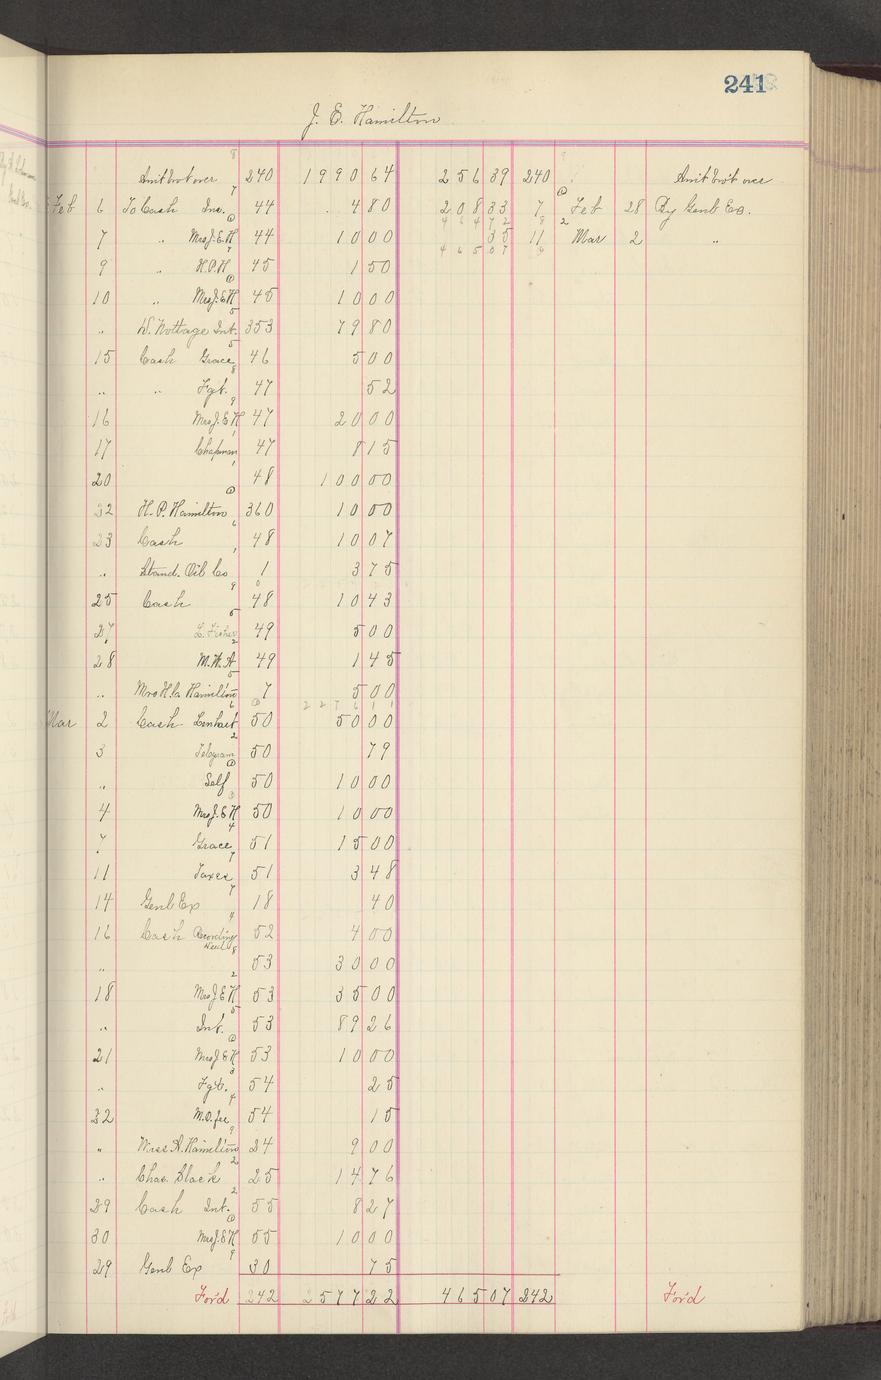 241
J. E. Hamilton
Amt brot over 240 1990 64 256 39 240 Amt brot over
Feb 6 To Cash Ins. 44 4 80 208 33 7 Feb 28 By Genl Ex.
7 " Mrs J. E. H 44 10 00 35 11 Mar 2 "
464 72
465 07
9 " H. P. H 45 1 50
10 " Mrs J. E H 45 10 00
" W. Nottage Int. 353 79 80
15 Cash Grace 46 5 00
" " Fgt. 47 52
16 Mrs J. E H 47 20 00
17 Chapman 47 8 15
20 48 100 00
22 H. P. Hamilton 360 10 00
23 Cash 48 10 07
" Stand. Oil Co 1 3 75
25 Cash 48 10 43
27 L. Fisher 49 5 00
28 M. W. A 49 1 45
" Mrs H. C. Hamilton 7 5 00
2276 11
Mar 2 Cash Lenhart 50 50 00
3 Telegram 50 79
" Self 50 10 00
4 Mrs J. E H 50 10 00
7 Grace 51 15 00
11 Taxes 51 3 48
14 Genl Ex 18 40
16 Cash Recording Deed 52 4 00
" 53 30 00
18 Mrs J E H 53 35 00
" Int. 53 89 26
21 Mrs J E H 53 10 00
" Fgt. 54 25
22 M. O. fee 54 15
" Miss A. Hamilton 24 9 00
" Chas. Black 25 14 76
29 Cash Int. 55 8 27
30 Mrs J. E H 55 10 00
29 Genl Ex 30 75
For'd 242 2577 22 465 07 242 For'd